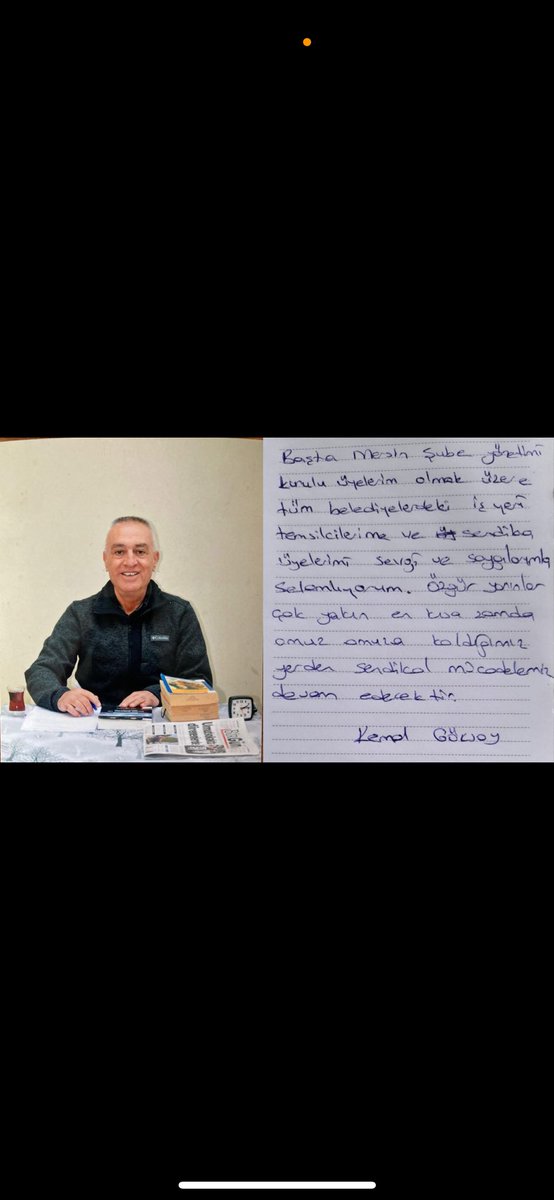 Columbia
Başta Mersin Şube yönetimi
kurulu üyelerim olmak üzere
tüm belediyelerdeki iş yeri
temsilcilerime ve sendika
üyelerimi sevgi ve saygılarımla
Selamlıyorum. Özgür yarınlar
Çok yakın en kısa zamda
omuz omuza kaldığımız
yerden sendikal mücadelemiz
devam edecektir.
Kemal Göksoy